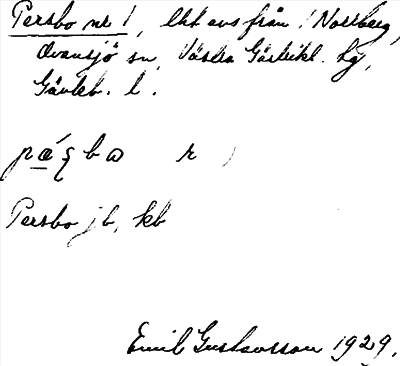 Persbo nr 1, lht avs från 1 Norrberg,
Ovansjö sn, Västra Gästrikl. hg,
Gävleb. l.
pæ´ʂbω r
Persbo jb, kb
Emil Gustavsson 1929.